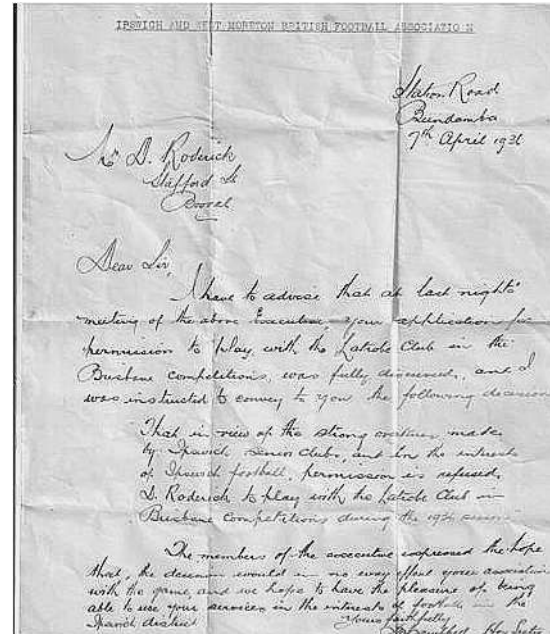 IPSWICH AND WEST MORETON BRITISH FOOTBALL ASSOCIATION
Station Road
Bundamba
7th April 193
Mr D. Roderick
Stafford St
Booval
Dear Sir,
I have to advise that at last night's
meeting of the above Executive, your application for
permission to play, with the Latrobe Club in the
Brisbane competitions, was fully discussed, and I
was instructed to convey to you the following decision
That in view of the strong made
by Ipswich Senior Clubs, and for the interests
of Ipswich football, permission is refused,
D. Roderick to play with the Latrobe Club in
Brisbane Competitions during the 193 season.
The members of the executive expressed the hope
that, the decision would in no way affect your association
with the game, and we hope to have the pleasure of being
able to use your services in the interests of football in the
Ipswich district
Yours faithfully
Hon Secty